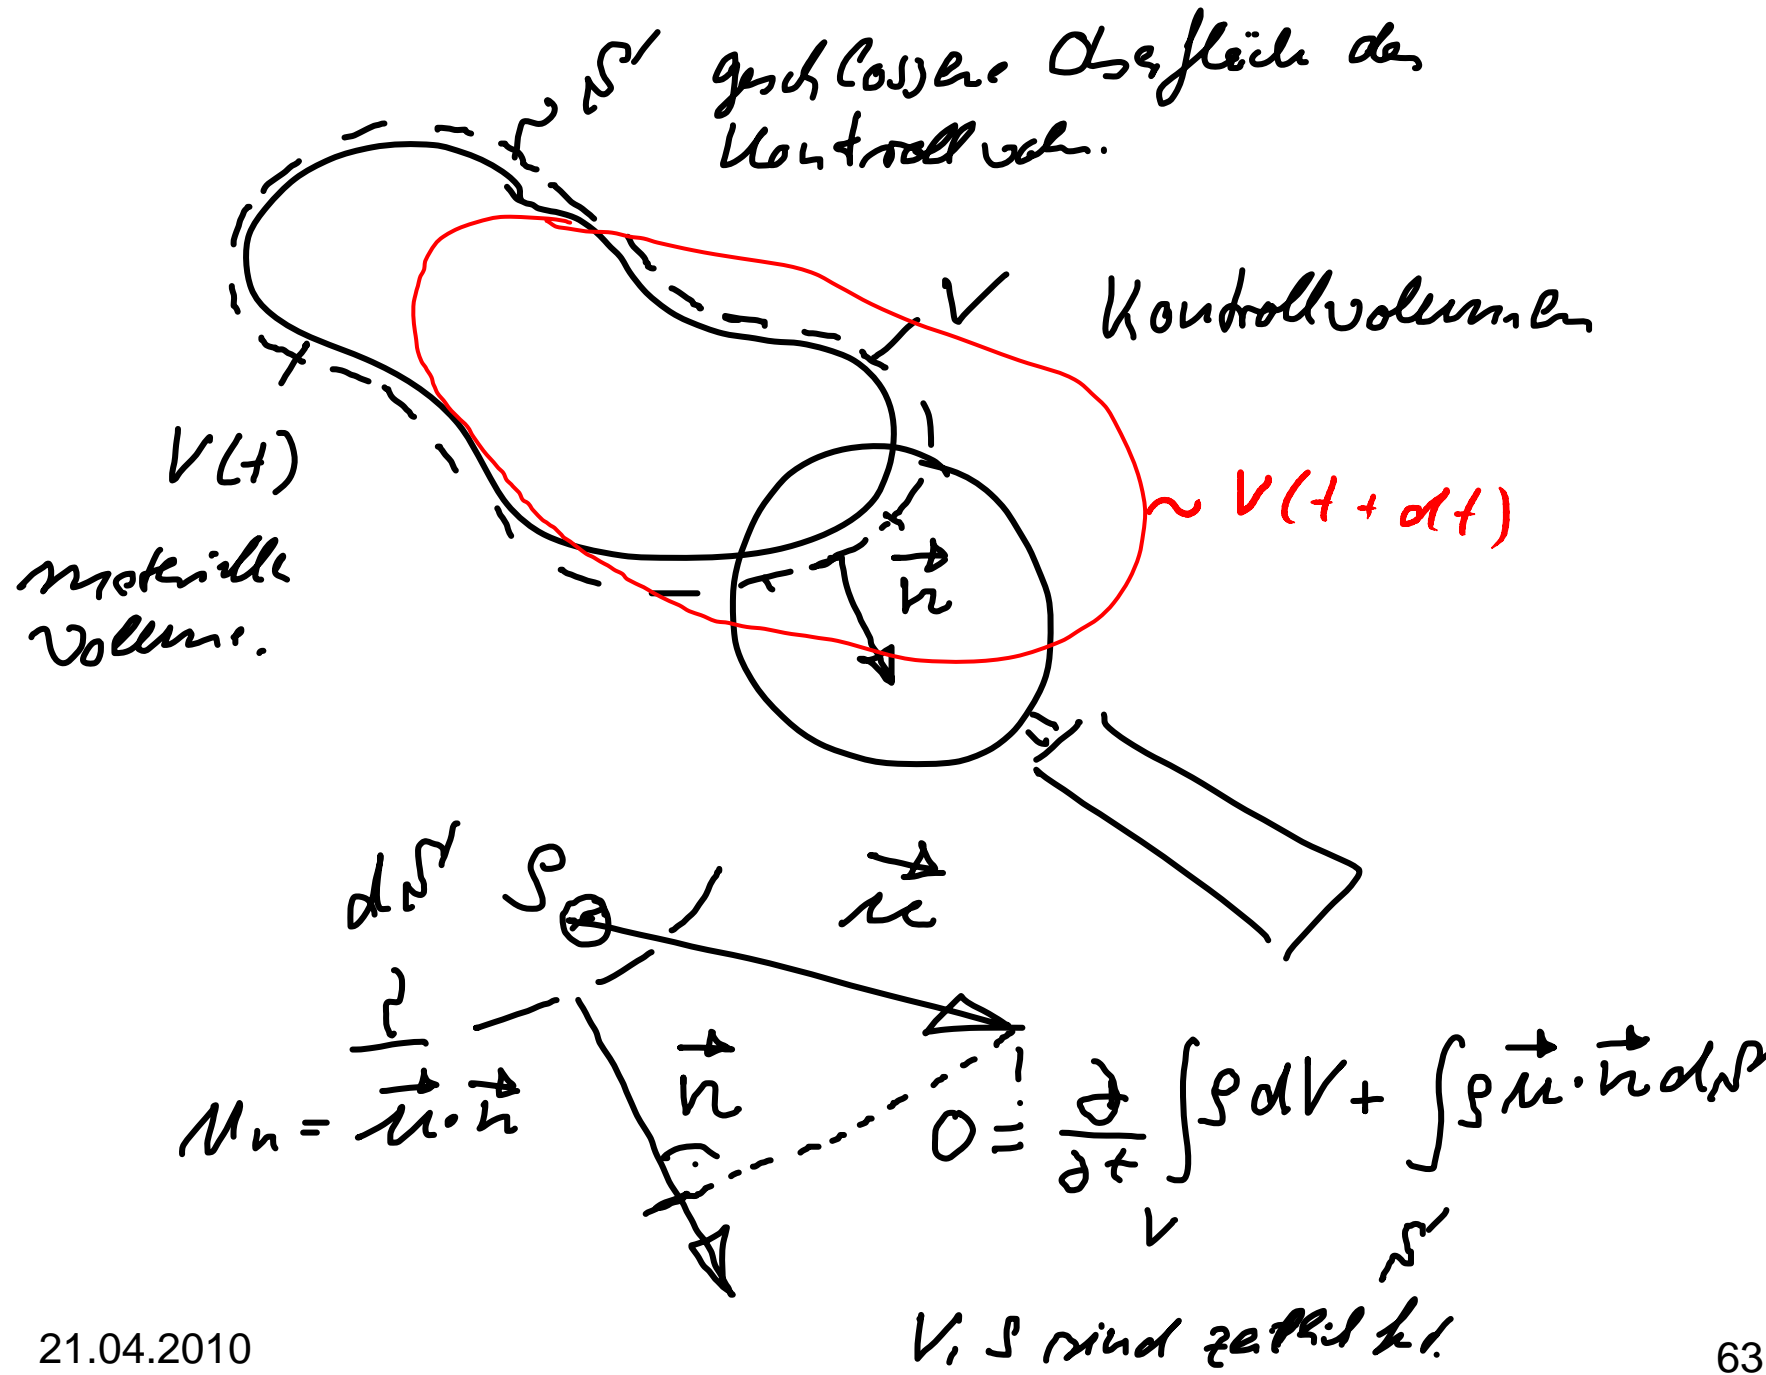 S geschlossene Oberfläche des
Kontrollvolum.
V Kontrollvolumen
V(t)
materielle
Volume.
~ V(t+dt)
n⃗
dS ρ u⃗
n⃗
u_n = u⃗·n⃗
0 = ∂/∂t ∫_V ρ dV + ∫_S ρ u⃗·n⃗ dS
V, S sind zeitlich
21.04.2010
63